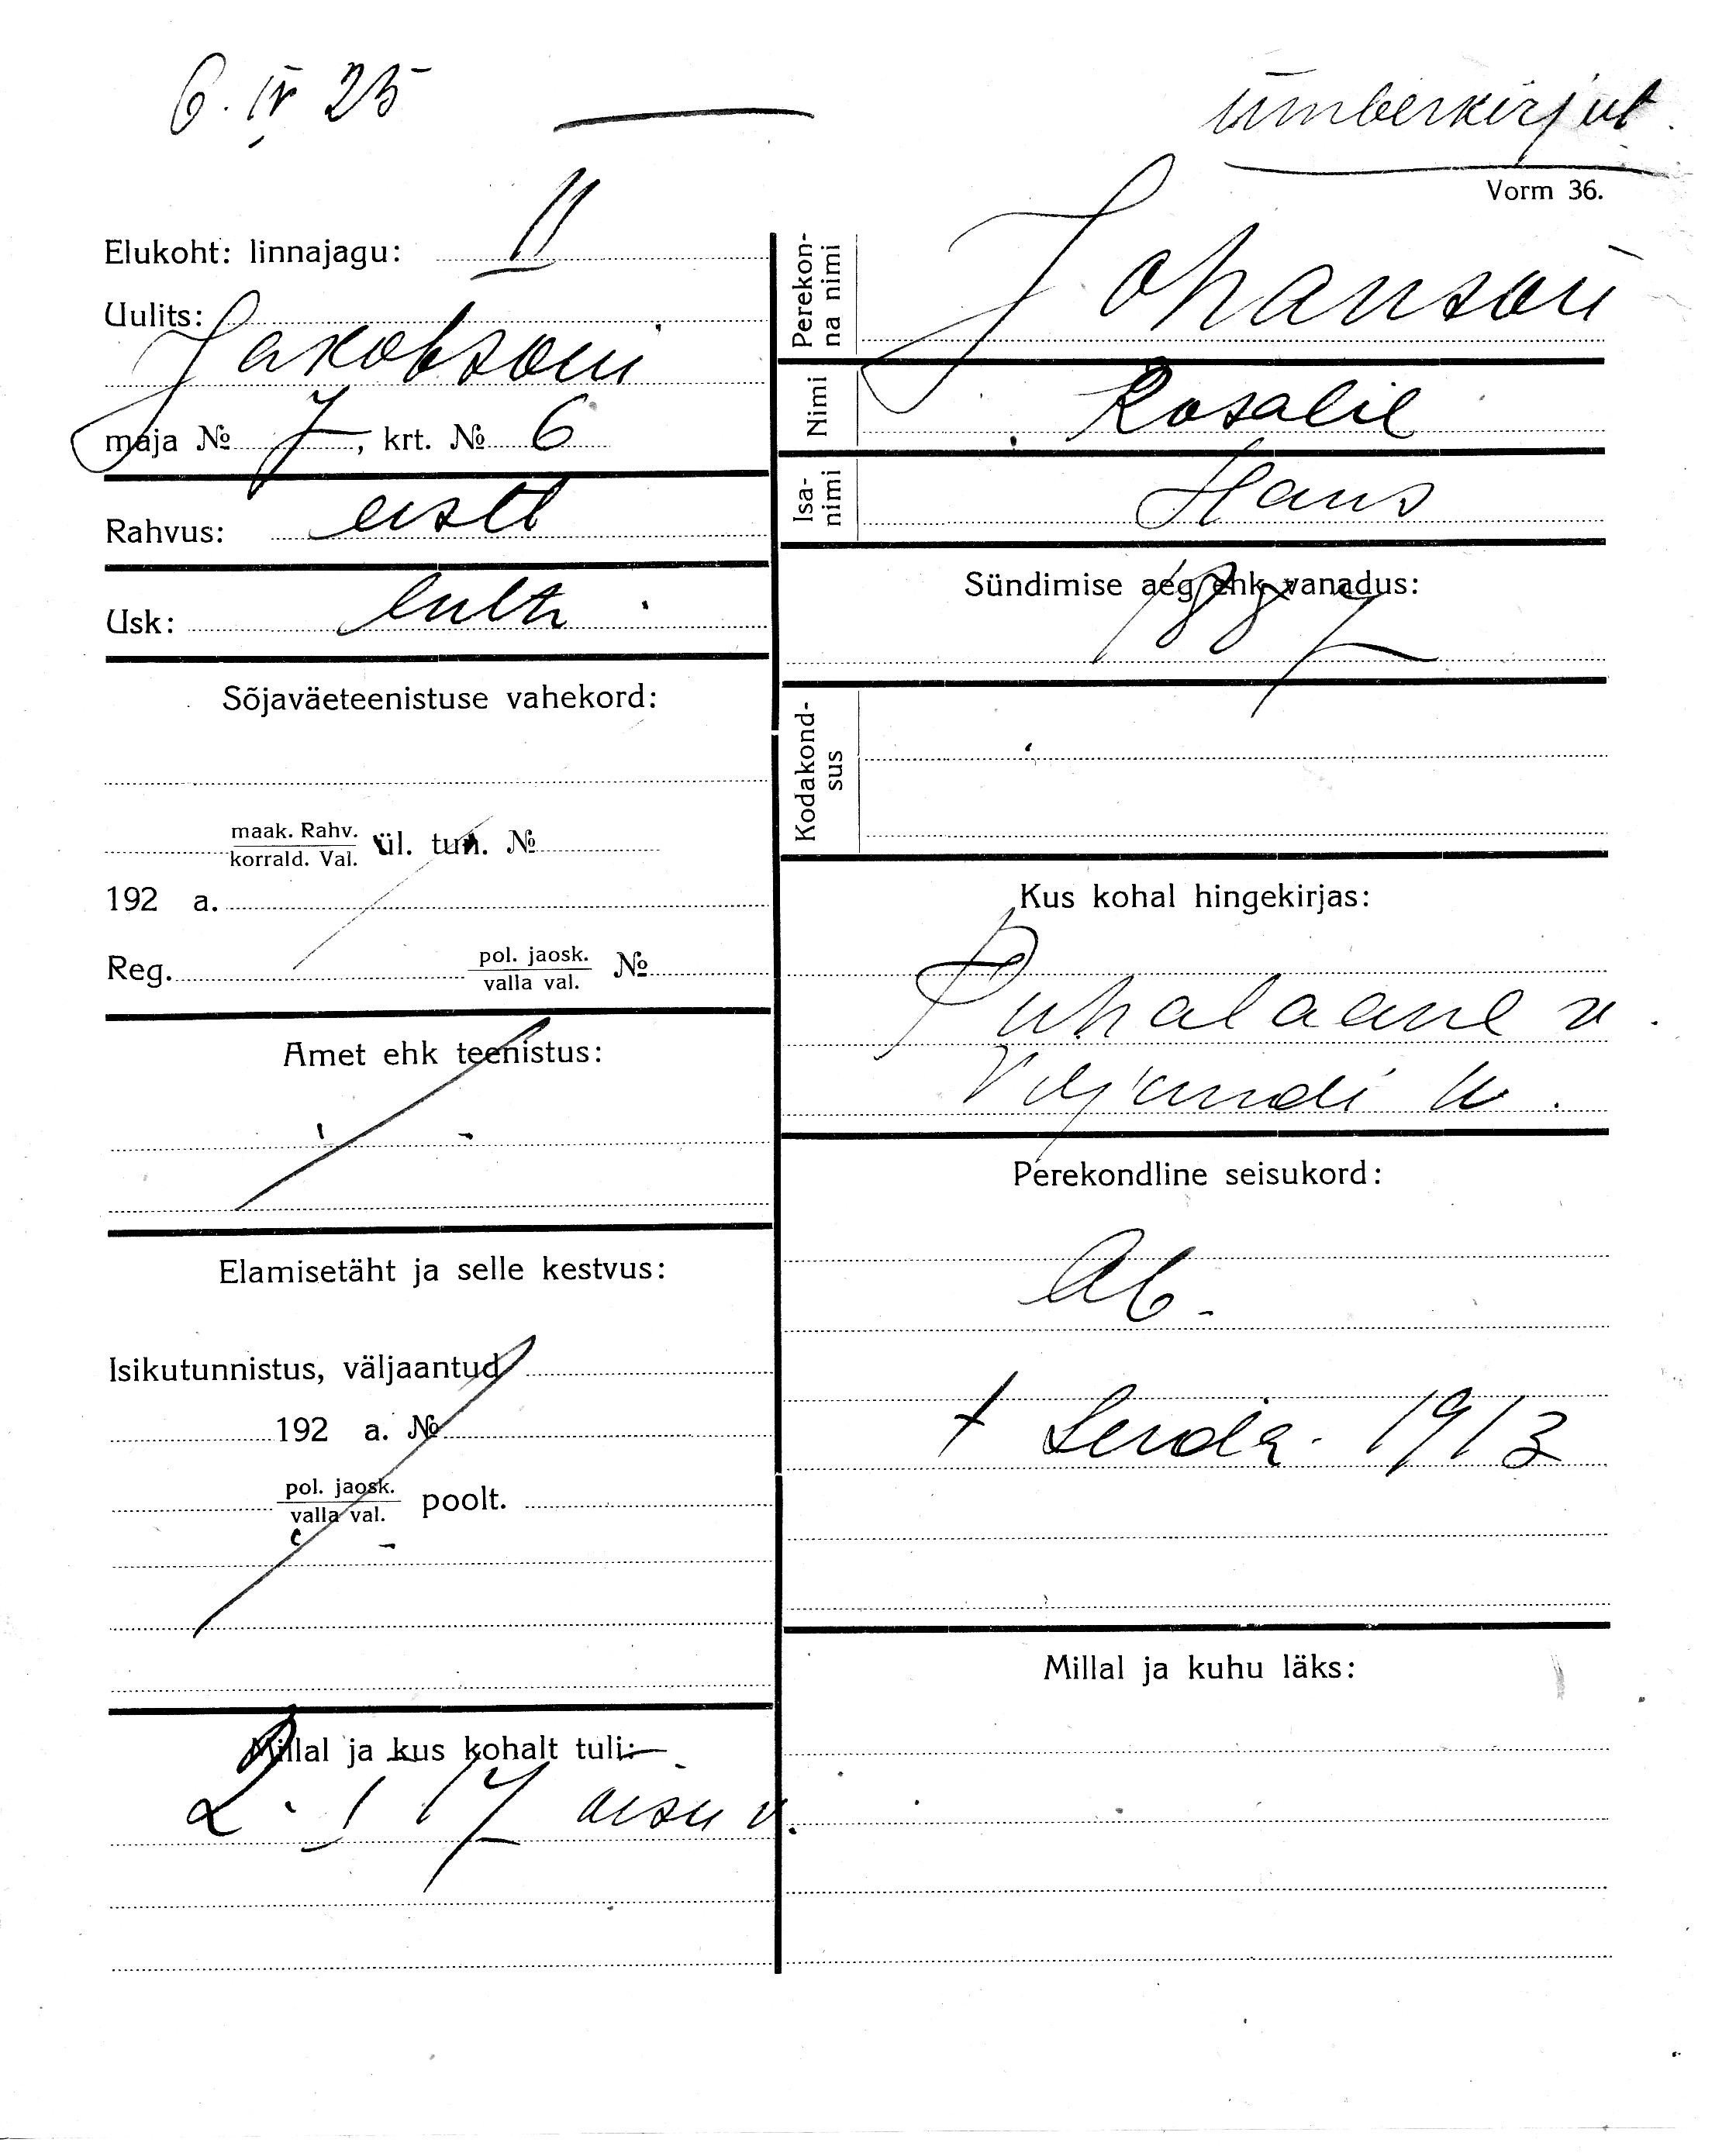 6. IV 25
ümberkirjut.
Vorm 36.
Elukoht: linnajagu: II
Uulits:
Jakobsoni
maja № 7, krt. № 6
Rahvus: eestl
Usk: luth.
Sõjaväeteenistuse vahekord:
maak. Rahv.
korrald. Val. ül. tun. №
192 a.
Reg. pol. jaosk. №
valla val.
Amet ehk teenistus:
Elamisetäht ja selle kestvus:
Isikutunnistus, väljaantud
192 a. №
pol. jaosk.
valla val. poolt.
Millal ja kus kohalt tuli:
2. I 17 Õisu v.
Perekon-
na nimi Johanson
Nimi Rosalie
Isa-
nimi Hans
Sündimise aeg ehk vanadus:
1887
Kodakond-
sus
Kus kohal hingekirjas:
Puhalaane v.
Viljandi k.
Perekondline seisukord:
Ab.
† Leida. 1913
Millal ja kuhu läks: